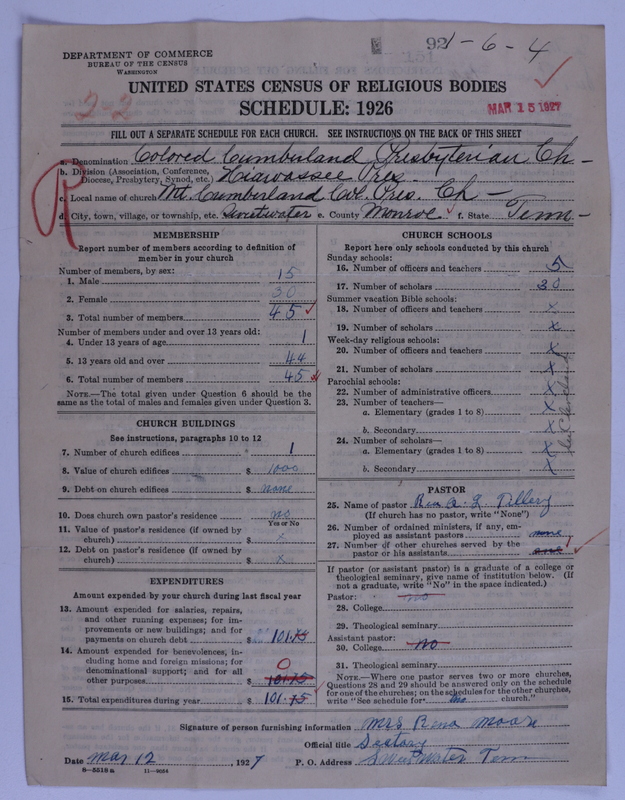 92 1-6-4
151
DEPARTMENT OF COMMERCE
BUREAU OF THE CENSUS
WASHINGTON
2-2
UNITED STATES CENSUS OF RELIGIOUS BODIES
SCHEDULE: 1926
MAR 15 1927
FILL OUT A SEPARATE SCHEDULE FOR EACH CHURCH. SEE INSTRUCTIONS ON THE BACK OF THIS SHEET
a. Denomination Colored Cumberland Presbyterian Ch -
b. Division (Association, Conference, Diocese, Presbytery, Synod, etc.) Hiawassee Pres
c. Local name of church Mt. Cumberland Col. Pres. Ch -
d. City, town, village, or township, etc. Sweetwater e. County Monroe f. State Tenn -
MEMBERSHIP
Report number of members according to definition of
member in your church
Number of members, by sex:
1. Male 15
2. Female 30
3. Total number of members 45
Number of members under and over 13 years old:
4. Under 13 years of age 1
5. 13 years old and over 44
6. Total number of members 45
NOTE.—The total given under Question 6 should be
same as the total of males and females given under Question 3.
CHURCH BUILDINGS
See instructions, paragraphs 10 to 12
7. Number of church edifices 1
8. Value of church edifices $ 1000
9. Debt on church edifices $ none
10. Does church own pastor's residence? no
Yes or No
11. Value of pastor's residence (if owned by
church) $ x
12. Debt on pastor's residence (if owned by
church) $ x
EXPENDITURES
Amount expended by your church during last fiscal year
13. Amount expended for salaries, repairs,
and other running expenses; for im-
provements or new buildings; and for
payments on church debt $ 101.75
14. Amount expended for benevolences, in-
cluding home and foreign missions; for
denominational support; and for all
other purposes $ 101.75 0
15. Total expenditures during year $ 101.75
CHURCH SCHOOLS
Report here only schools conducted by this church
Sunday schools:
16. Number of officers and teachers 5
17. Number of scholars 30
Summer vacation Bible schools:
18. Number of officers and teachers x
19. Number of scholars x
Week-day religious schools:
20. Number of officers and teachers x
21. Number of scholars x
Parochial schools:
22. Number of administrative officers x
23. Number of teachers—
a. Elementary (grades 1 to 8) x
b. Secondary x
24. Number of scholars—
a. Elementary (grades 1 to 8) x
b. Secondary x
PASTOR
25. Name of pastor Rev. A. L. Tillery
(If church has no pastor, write "None")
26. Number of ordained ministers, if any, em-
ployed as assistant pastors none
27. Number of other churches served by the
pastor or his assistants one
If pastor (or assistant pastor) is a graduate of a college or
theological seminary, give name of institution below. (If
not a graduate, write "No" in the space indicated.)
Pastor: no
28. College
29. Theological seminary
Assistant pastor:
30. College No
31. Theological seminary
NOTE.—Where one pastor serves two or more churches,
Questions 28 and 29 should be answered only on the schedule
for one of the churches; on the schedules for the other churches,
write "See schedule for church."
Signature of person furnishing information Mrs Rena Moore
Official title
Date Mar 12, 1927 P. O. Address Sweetwater Tenn
8-5518 a 11-9024